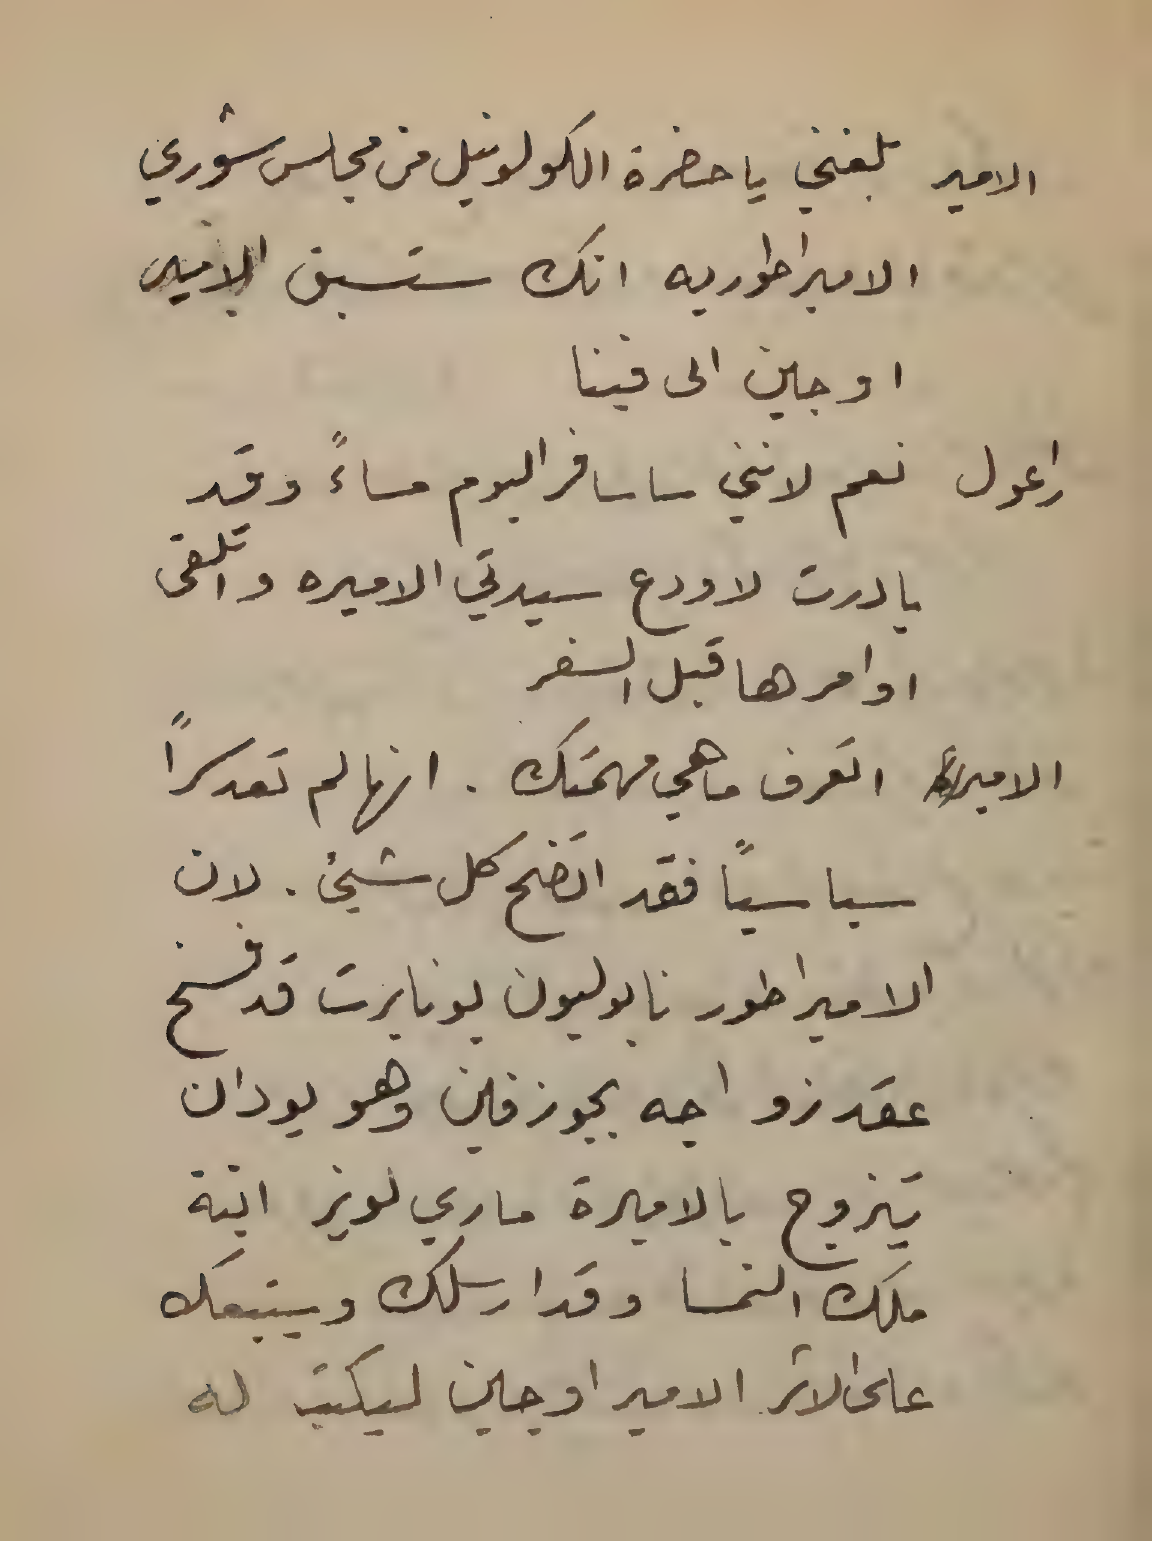 الامير بلغني يا حضرة الكولونيل من مجلس شوري
الامبراطوريه انك ستسبق الامير
اوجين الى فينا
راعول نعم لانني ساسافر اليوم مساءً وقد
بادرت لاودع سيدتي الاميره واتلقى
اوامرها قبل السفر
الاميره اتعرف ماهي مهمتك . انها لم تعد سراً
سياسياً فقد اتضح كل شيئ . لان
الامبراطور نابوليون بونابرت قد فسخ
عقد زواجه بجوزفين وهو يود ان
يتزوج بالاميرة ماري لويز ابنة
ملك النمسا وقد ارسلك وسيتبعك
على الاثر الامير اوجين ليكتب له